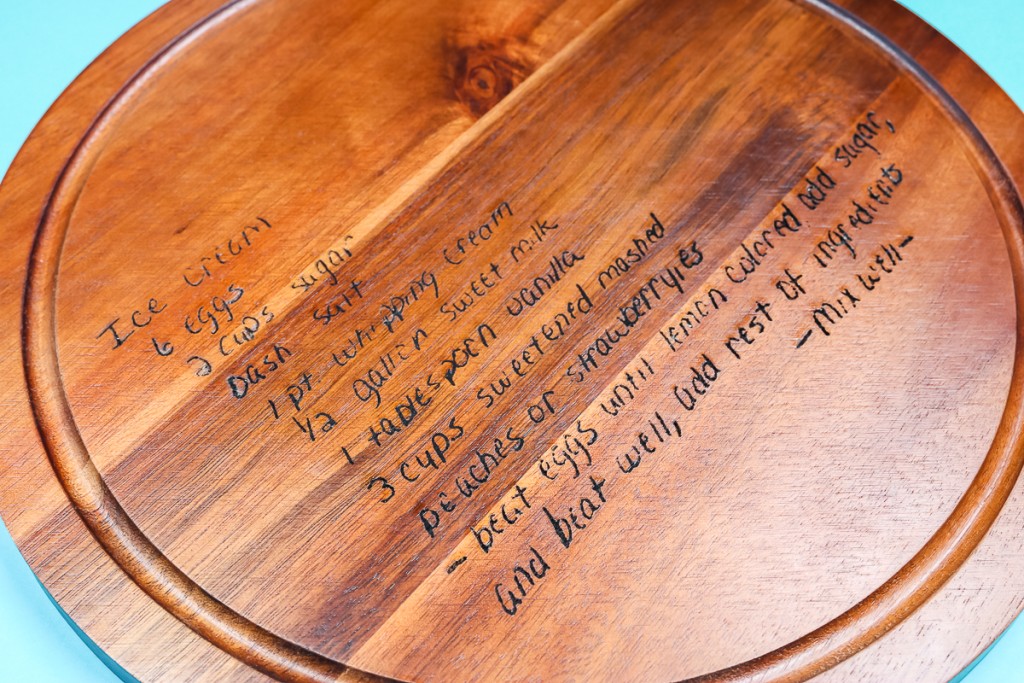 Ice cream
6 eggs
2 cups sugar
Dash salt
1 pt whipping cream
1/2 gallon sweet milk
1 tablespoon vanilla
3 cups sweetened mashed
peaches or strawberryies
- beat eggs until lemon colored add sugar,
and beat well, add rest of ingredients
- Mix well -